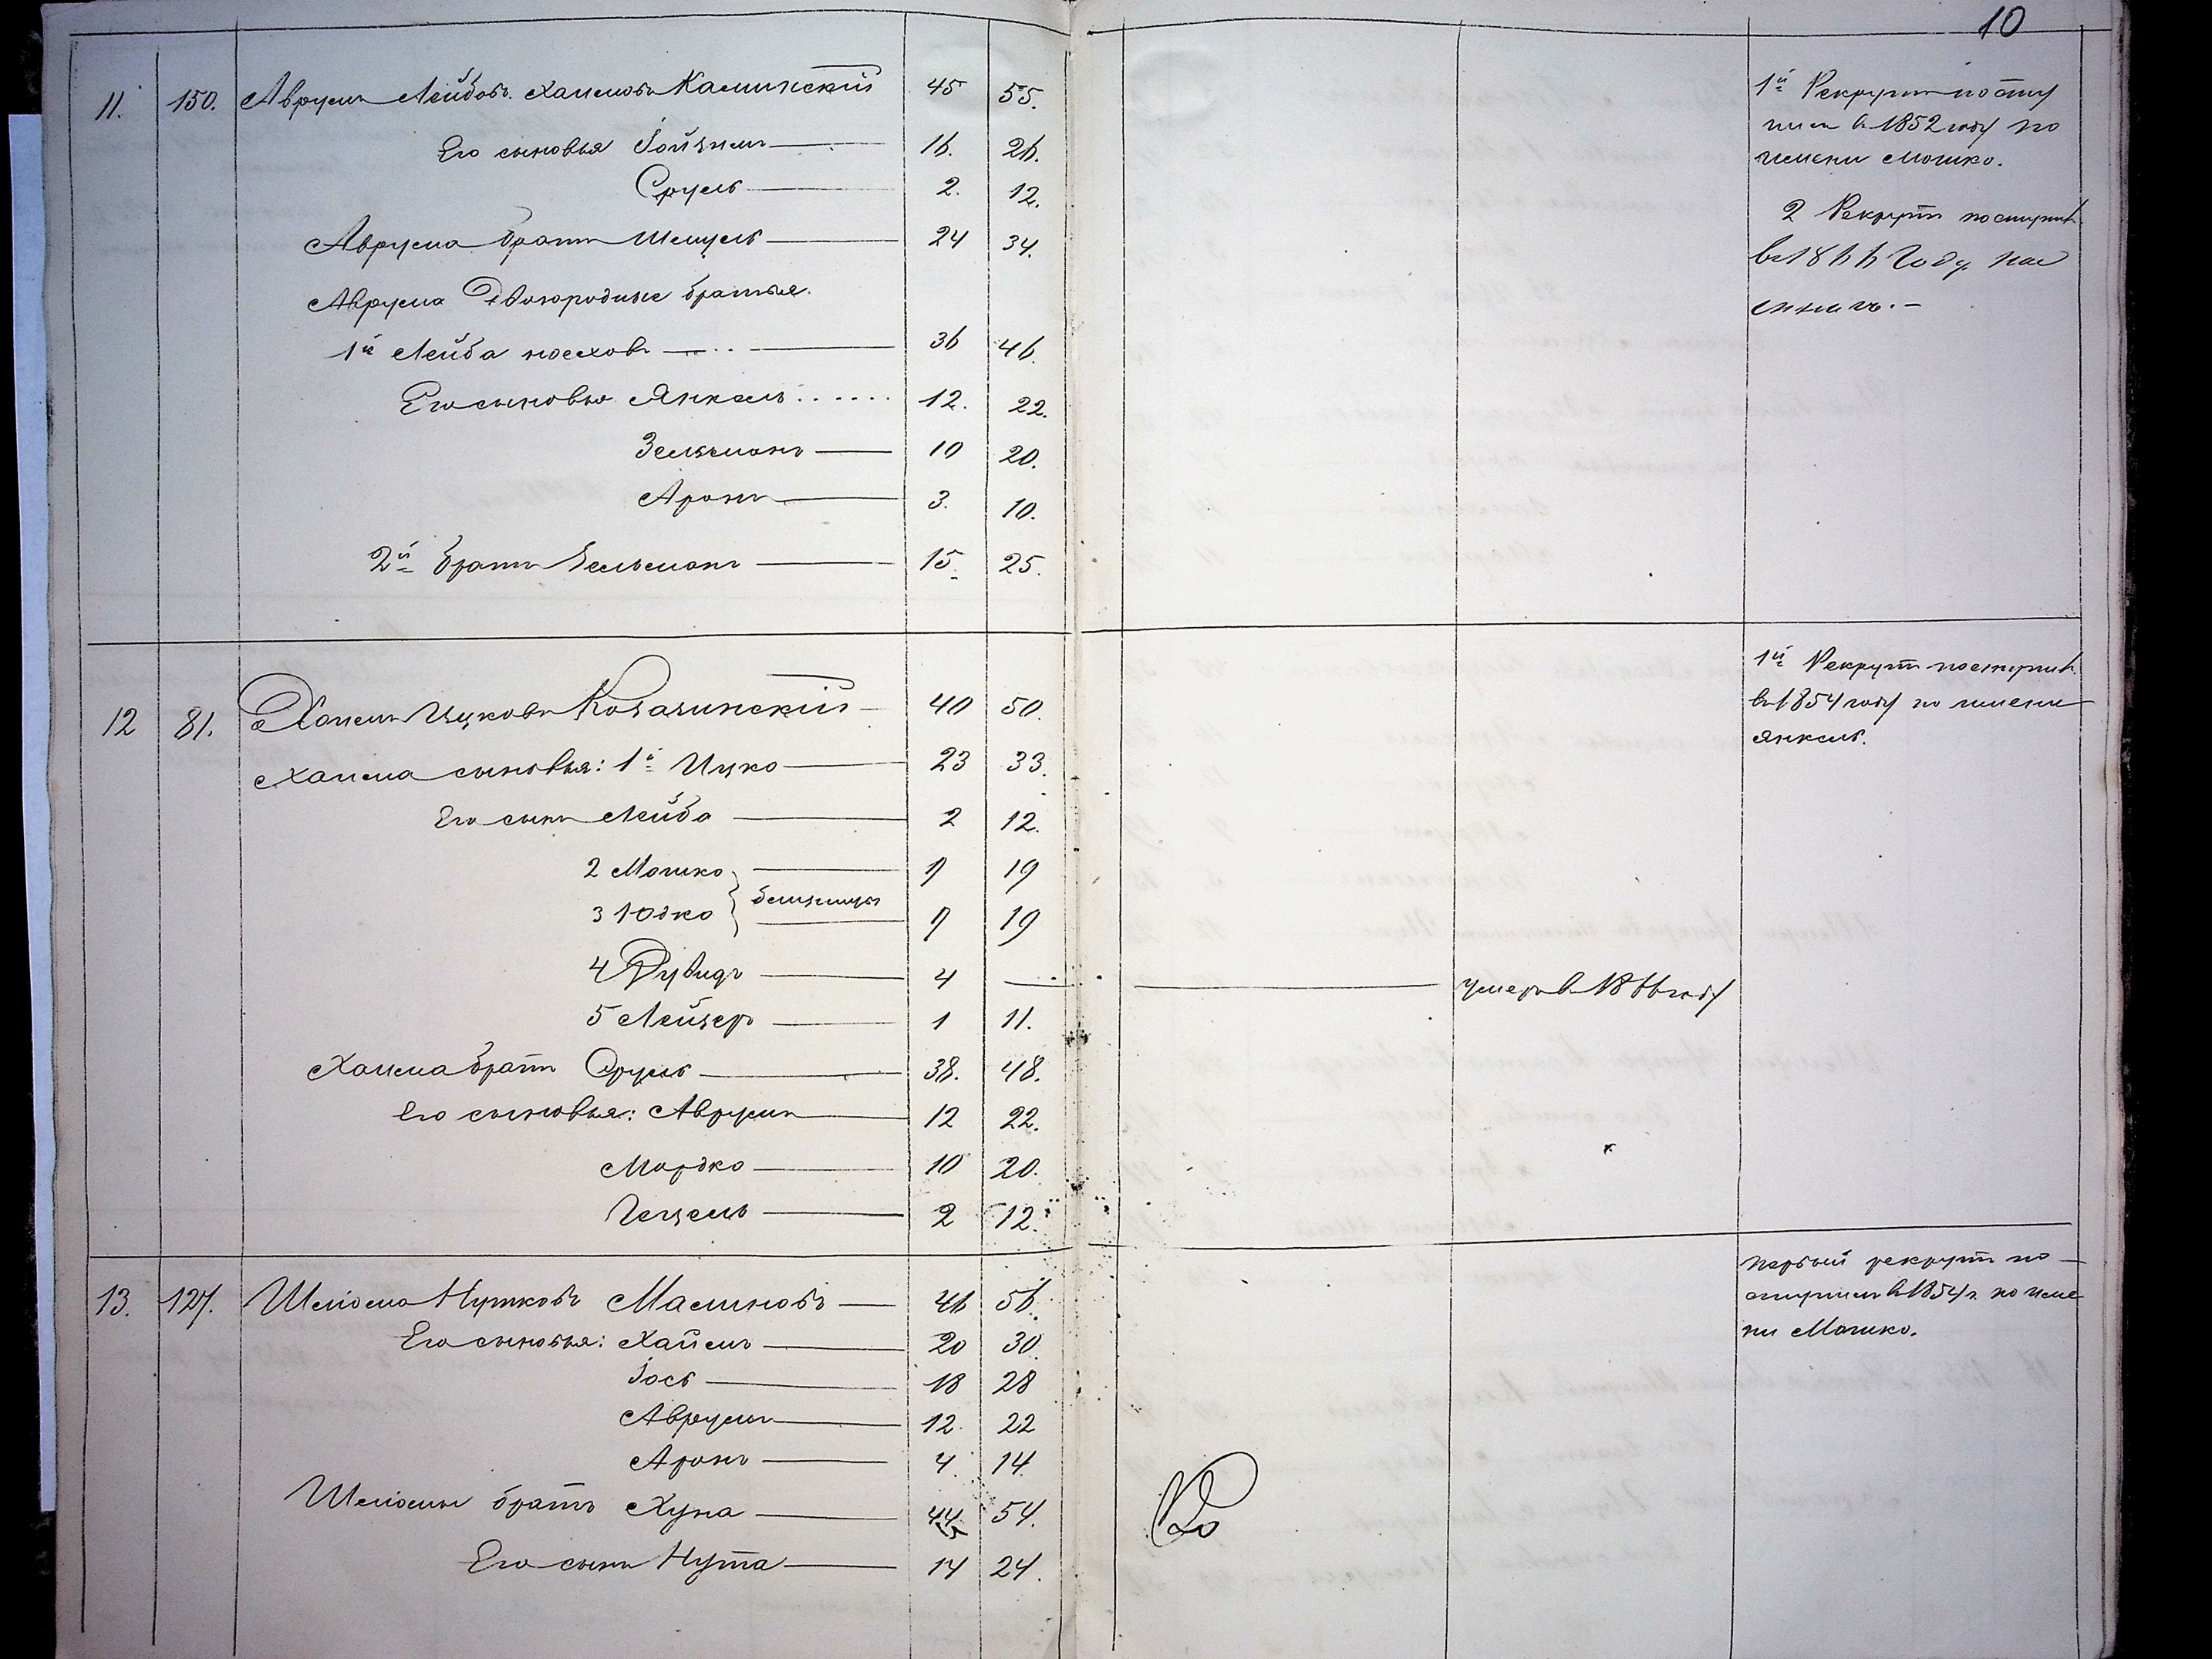 10
11. 150. Аврумъ Лейбовъ Хаимовъ Каминскій 45 55.
Его сыновья Іойзипъ 16. 26.
Сруль 2. 12.
Аврума братъ Шмуль 24 34.
Аврума Двоюродные братья.
1й Лейба 36 46.
Его сыновья Янкель 12. 22.
Зельманъ 10 20.
Аронъ 3. 10.
2й братъ Зельманъ 15. 25.
1й Рекрутъ посту
пилъ въ 1852 году по
имени Мошко.
2 Рекрутъ поступил.
въ 1866 Году
12 81. Хаимъ Ицковъ Козачинскій 40 50.
Хаима сыновья: 1й Ицко 23 33.
Его сынъ Лейба 2 12.
2 Мошко 9 19
близнецы
3 Юдко 9 19
4 Рувидъ 4 — умеръ въ 1866 году
5 Лейзеръ 1 11.
Хаима братъ Сруль 38. 48.
Его сыновья: Аврумъ 12 22.
Мордко 10 20.
Гецель 2 12.
1й Рекрутъ поступил.
въ 1854 году по имени
Янкель.
13. 127. Шліома Нутковъ Малиновъ 46 56.
Его сыновья: Хаимъ 20 30.
Іось 18 28
Аврумъ 12. 22
Аронъ 4. 14.
Шліомы братъ Хуна 44 54.
Его сынъ Нута 14 24.
первый рекрутъ по-
ступилъ въ 1854 г. по име
ни Мошко.